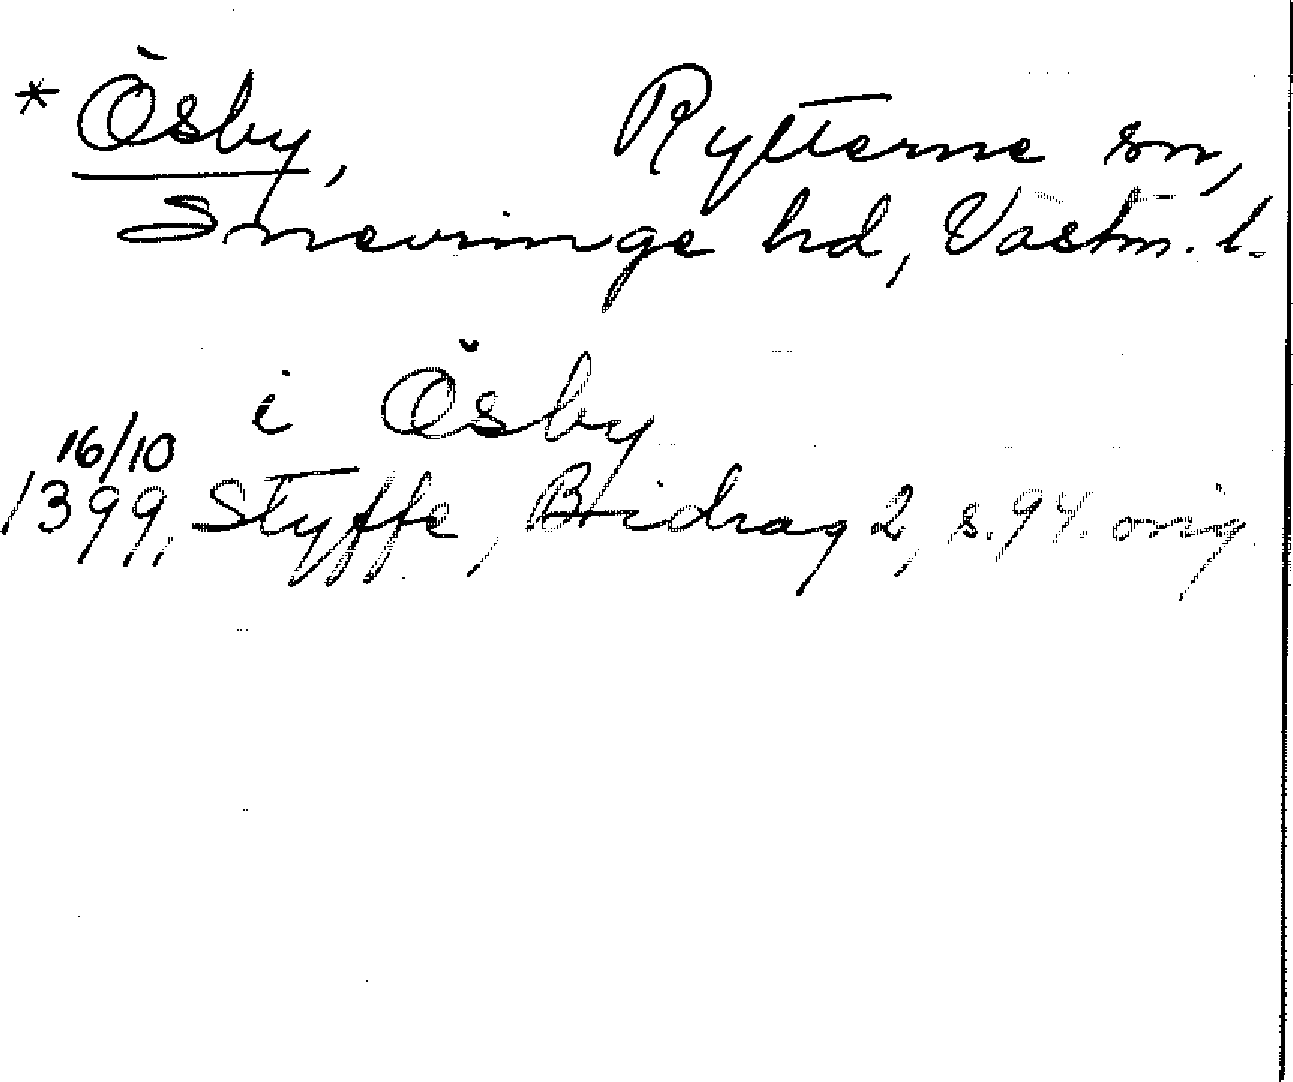 * Ösby, Rytterne sn,
Snevringe hd, Västm. l.
i Ösby
16/10
1399, Styffe, Bidrag 2, s. 94. orig